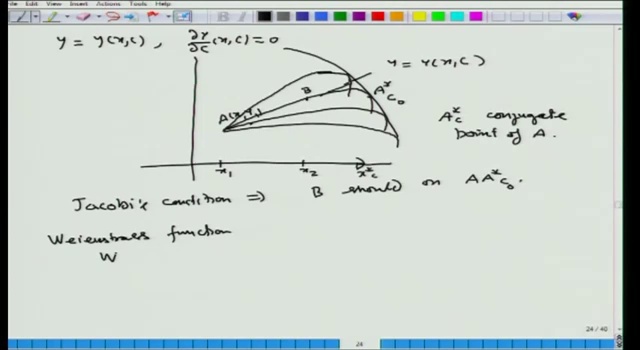 File Edit View Insert Actions Tools Help
y = y(x,c), ∂Y/∂C (x,c) = 0
y = Y(x,c)
B
A*c₀
A(x₁,y₁)
A*c conjugate
point of A.
x₁ x₂ x*c
Jacobi's condition ⇒ B should on AA*c₀.
Weierstrass function
W
24 / 40
24